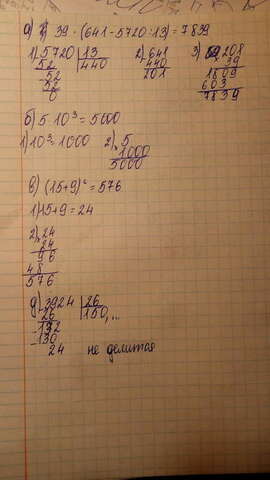 а) 39 · (641 - 5720 : 13) = 7839
1) 5720 | 13
52 440
52
52
0
2) 641
440
201
3) 208
39
1809
603
7839
б) 5 · 10³ = 5000
1) 10³ = 1000 2) 5
1000
5000
в) (15+9)² = 576
1) 15+9 = 24
2) 24
24
96
48
576
д) 3924 | 26
26 150,...
132
130
24 не делится